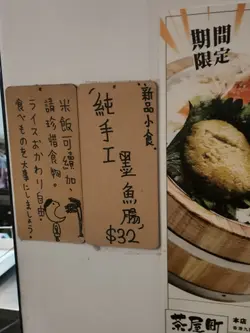 新品小食
"純手工墨魚腸"
$32
米飯可續加、
請珍惜食物。
ライスおかわり自由。
食べものを大事にしましょう。
期間
限定
茶屋町
本店